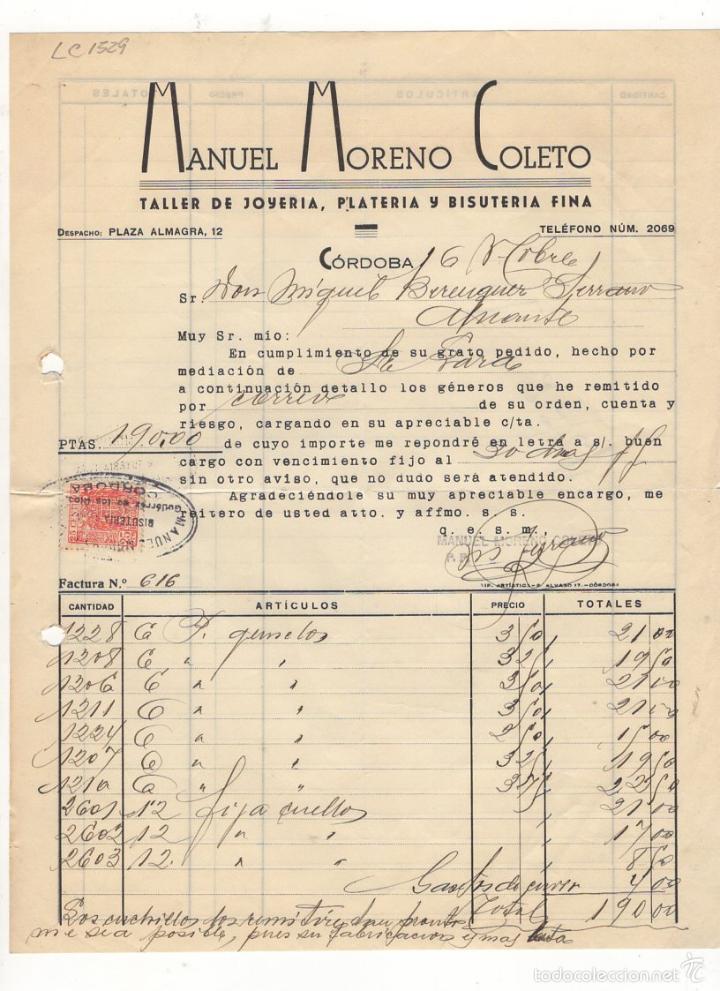 LC1529
MANUEL MORENO COLETO
TALLER DE JOYERIA, PLATERIA Y BISUTERIA FINA
DESPACHO: PLAZA ALMAGRA, 12 TELÉFONO NÚM. 2069
CÓRDOBA 16
Sr. Don Miguel Berenguer Serrano
Alicante
Muy Sr. mío:
En cumplimiento de su grato pedido, hecho por
mediación de Sr
a continuación detallo los géneros que he remitido
por correo de su orden, cuenta y
riesgo, cargando en su apreciable c/ta.
PTAS. 190,00 de cuyo importe me repondré en letra a s/. buen
cargo con vencimiento fijo al 30 días
sin otro aviso, que no dudo será atendido.
Agradeciéndole su muy apreciable encargo, me
reitero de usted atto. y affmo. s. s.
q. e. s. m.,
MANUEL MORENO
P. P.
MANUEL
BISUTERIA
CORDOBA
TIP. ARTÍSTICA-S. ALVARO 17.-CÓRDOBA
Factura N.º 616
CANTIDAD ARTÍCULOS PRECIO TOTALES
1228 6 P. gemelos 3,50 21 00
1208 6 " " 3 25 19 50
1206 6 " " 3 50 21 00
1211 6 " " 3 50 21 00
1224 6 " " 2 50 15 00
1207 6 " " 3 25 19 50
1210 6 " " 3 75 22 50
2601 12 fija cuellos 21 00
2602 12 " " 17 00
2603 12 " " 8 50
Gastos de envio 4 00
Total 190 00
Los cuchillos los remitiré tan pronto
me sea posible, pues su fabricacion es mas lenta
todocoleccion.net